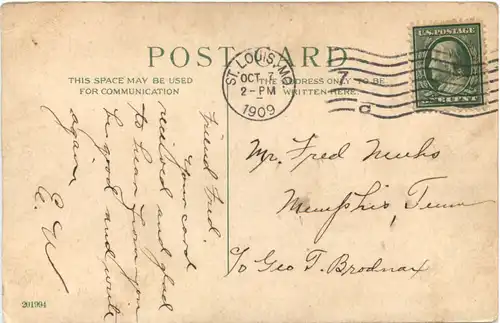 POST CARD
THIS SPACE MAY BE USED
FOR COMMUNICATION
THE ADDRESS ONLY TO BE
WRITTEN HERE.
ST. LOUIS, MO.
OCT 7
2-PM
1909
7
d
U.S. POSTAGE
CENT
friend Fred.
Your card
received and glad
to hear from you
be good and write
again
E. W
Mr. Fred
Memphis Tenn
To Geo T. Brodnax
201994